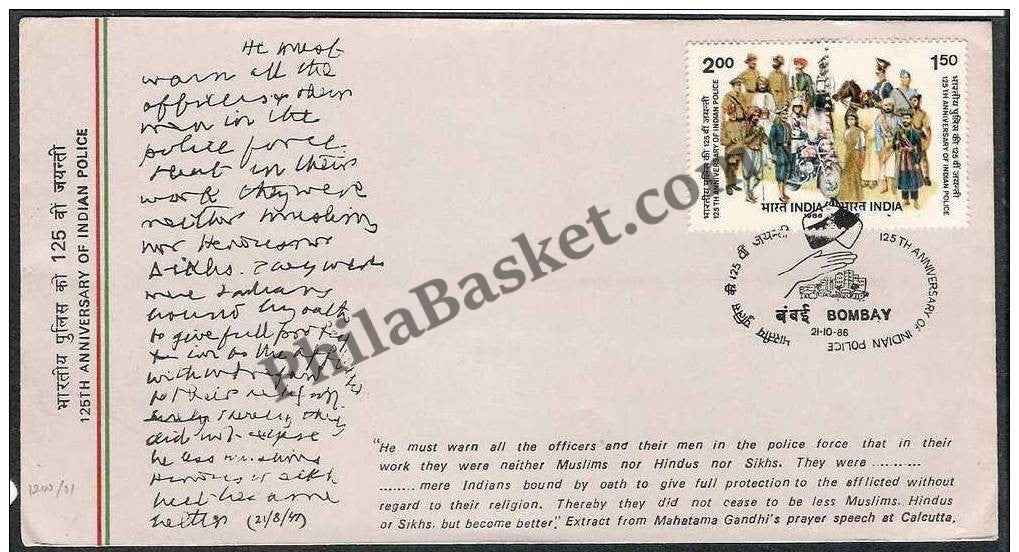 भारतीय पुलिस की 125 वीं जयन्ती
125TH ANNIVERSARY OF INDIAN POLICE
He must
warn all the
officers & their
men in the
police force
that in their
work they were
neither Muslims
nor Hindus nor
Sikhs. They were
mere Indians
bound by oath
to give full
with
to their
did not cease
be less Muslims
Hindus or Sikh
better (21/8/47)
1200/31
2.00
भारतीय पुलिस की 125 वीं जयन्ती
125TH ANNIVERSARY OF INDIAN POLICE
भारत INDIA
1986
1.50
भारतीय पुलिस की 125 वीं जयन्ती
125TH ANNIVERSARY OF INDIAN POLICE
भारत INDIA
भारतीय पुलिस की 125 वीं जयन्ती
125TH ANNIVERSARY OF INDIAN POLICE
बंबई BOMBAY
21-10-86
PhilaBasket.com
"He must warn all the officers and their men in the police force that in their
work they were neither Muslims nor Hindus nor Sikhs. They were ..........
........ mere Indians bound by oath to give full protection to the afflicted without
regard to their religion. Thereby they did not cease to be less Muslims, Hindus
or Sikhs, but become better." Extract from Mahatama Gandhi's prayer speech at Calcutta.